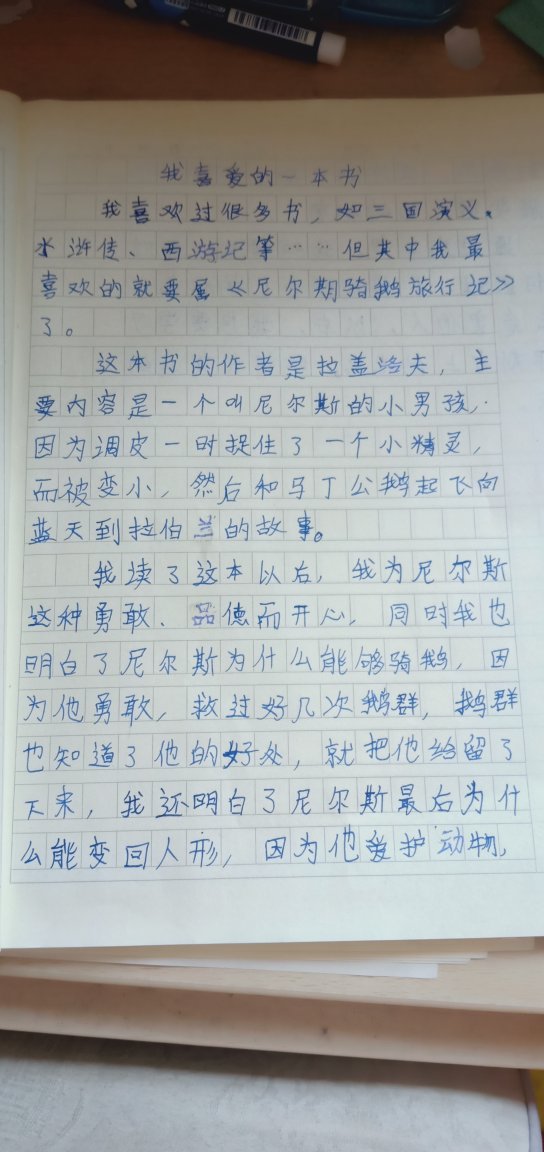 我喜爱的一本书
我喜欢过很多书，如三国演义、
水浒传、西游记等……但其中我最
喜欢的就要属《尼尔期骑鹅旅行记》
了。
这本书的作者是拉盖洛夫，主
要内容是一个叫尼尔斯的小男孩，
因为调皮一时捉住了一个小精灵，
而被变小，然后和马丁公鹅起飞向
蓝天到拉伯兰的故事。
我读了这本以后，我为尼尔斯
这种勇敢、品德而开心，同时我也
明白了尼尔斯为什么能够骑鹅，因
为他勇敢，救过好几次鹅群，鹅群
也知道了他的好处，就把他给留了
下来，我还明白了尼尔斯最后为什
么能变回人形，因为他爱护动物，